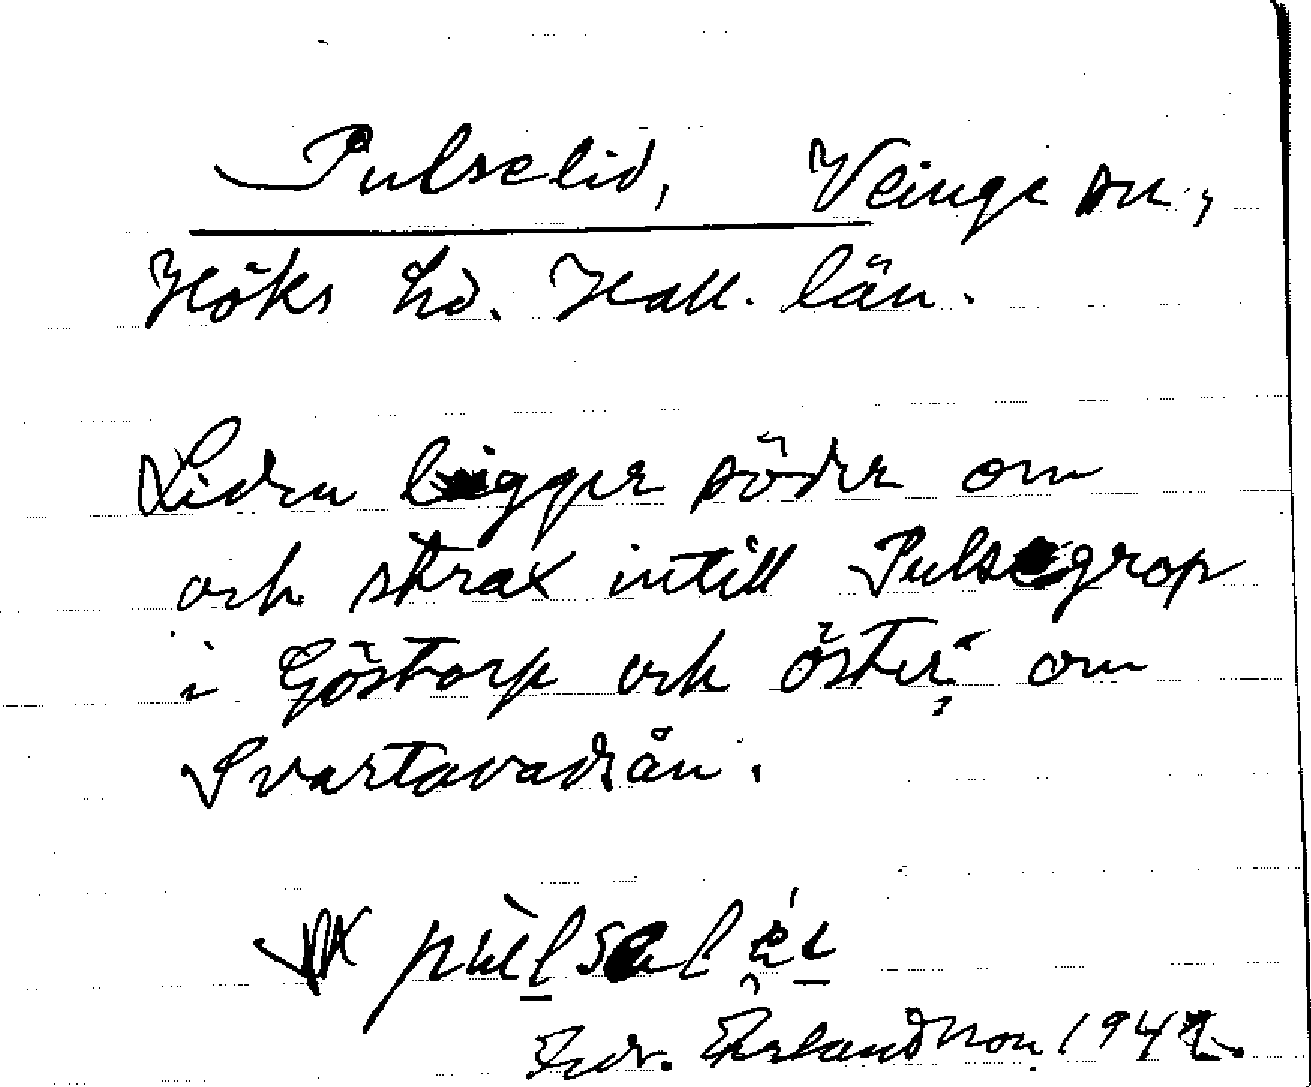 Pulselid, Veinge sn.,
Höks hd. Hall. län.
Liden ligger söder om
och strax intill Pulsegrop
i Göstorp och öster om
Svartavadsån.
Fdr. Erlandsson 194